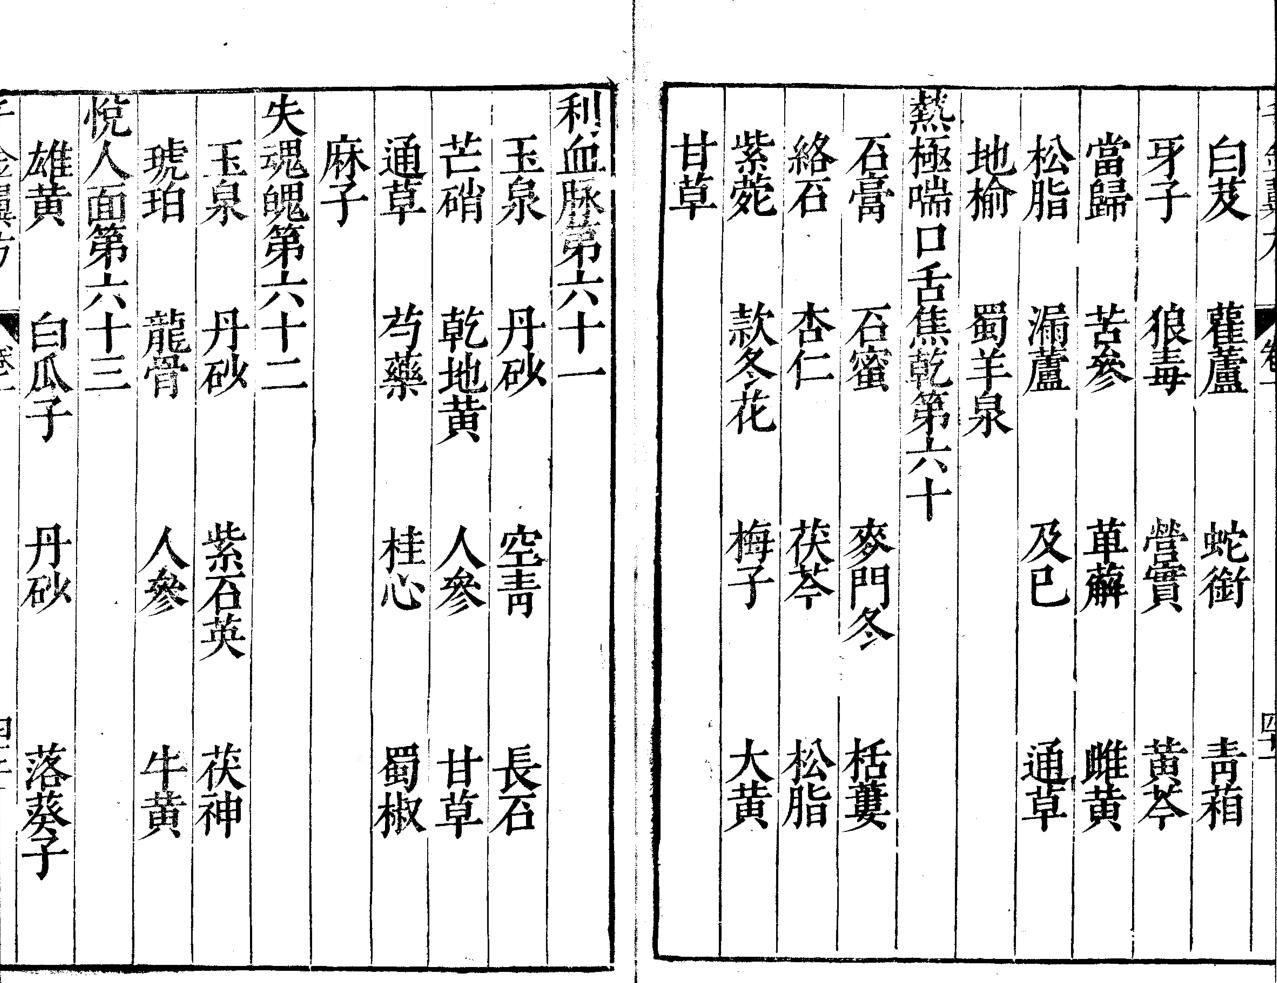 白芨 雚蘆 蛇銜 青葙
牙子 狼毒 營實 黃芩
當歸 苦參 萆薢 雌黃
松脂 漏蘆 及已 通草
地榆 蜀羊泉
熱極喘口舌焦乾第六十
石膏 石蜜 麥門冬 栝蔞
絡石 杏仁 茯苓 松脂
紫菀 款冬花 梅子 大黃
甘草
利血脉第六十一
玉泉 丹砂 空青 長石
芒硝 乾地黃 人參 甘草
通草 芍藥 桂心 蜀椒
麻子
失魂魄第六十二
玉泉 丹砂 紫石英 茯神
琥珀 龍骨 人參 牛黃
悅人面第六十三
雄黃 白瓜子 丹砂 落葵子